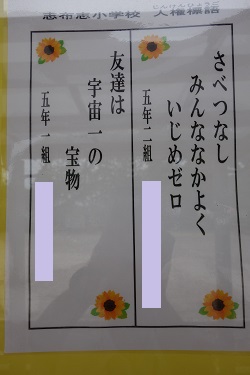 志布志小学校 人権標語
さべつなし
みんななかよく
いじめゼロ
五年二組
友達は
宇宙一の
宝物
五年一組